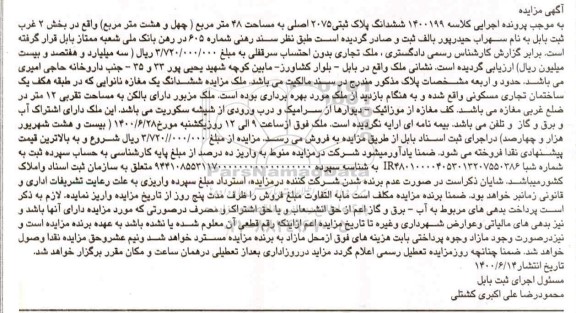 آگهی مزایده
به موجب پرونده اجرایی کلاسه ۱۴۰۰۱۹۹ ششدانگ پلاک ثبتی۲۰۷۵ اصلی به مساحت ۴۸ متر مربع ( چهل و هشت متر مربع) واقع در بخش ۲ غرب
ثبت بابل به نام سهراب حیدرپور بالف ثبت و صادر گردیده است طبق نظر سند رهنی شماره ۶۰۵ در رهن بانک ملی شعبه ممتاز بابل قرار گرفته
است. برابر گزارش کارشناس رسمی دادگستری ، ملک تجاری بدون احتساب سرقفلی به مبلغ ۳/۷۲۰/۰۰۰/۰۰۰ ریال ( سه میلیارد و هفتصد و بیست
میلیون ریال) ارزیابی گردیده است. نشانی ملک واقع در بابل - بلوار کشاورز- مابین کوچه شهید یحیی پور ۳۳ و ۳۵ - جنب داروخانه حاجی امیری
می باشد. حدود و اربعه مشخصات پلاک مذکور مندرج در سند مالکیت می باشد. ملک مزایده ششدانگ یک مغازه نانوایی که در طبقه هکف یک
ساختمان تجاری مسکونی واقع شده و به هنگام بازدید از ملک مورد بهره برداری بوده است. ملک مزبور دارای بالکن به مساحت تقربی ۱۲ متر در
ضلع غربی مغازه می باشد. کف مغازه از موزائیک دیوارها از سرامیک و درب ورودی از شیشه سکوریت می باشد. این ملک دارای اشتراک آب
و برق و گاز و تلفن می باشد. بیمه نامه ای ارایه نگردیده است. ملک فوق ازساعت ۹ الی ۱۲ روزیکشنبه مورخ۱۴۰۰/۶/۲۸ ( بیست و هشت شهریور
هزار و چهارصد) دراجرای ثبت اسناد بابل از طریق مزایده به فروش می رسد. مزایده از مبلغ ۳/۷۲۰/۰۰۰/۰۰۰ ریال شروع و به بالاترین قیمت
پیشنهادی نقدا فروخته می شود. ضمنا یادآورمیشود شرکت درمزایده منوط به واریز ده درصد از مبلغ پایه کارشناسی به حساب سپرده ثبت به
شماره شبا
متعلق به سازمان ثبت اسناد واملاک
کشورمیباشد. شایان ذکراست در صورت عدم برنده شدن شرکت کننده درمزایده، استرداد مبلغ سپرده واریزی به علت رعایت تشریفات اداری و
قانونی زمانبر خواهد بود. ضمنا برنده مزایده مکلف است مابه التفاوت مبلغ فروش را ظرف مدت پنج روز از تاریخ مزایده واریز نماید. لازم به ذکر
است پرداخت بدهی های مربوط به آب - برق و گاز اعم از حق انشعاب و یا حق اشتراک و مصرف درصورتی که مورد مزایده دارای آنها باشد و
نیز بدهی های مالیاتی وعوارض شهرداری وغیره تا تاریخ مزایده اعم ازاینکه رقم قطعی آن معلوم شده یا نشده باشد به عهده برنده مزایده است و
نیزدرصورت وجود مازاد وجوه پرداختی بابت هزینه های فوق ازمحل مازاد به برنده مزایده مسترد خواهد شد ونیم عشروحق مزایده نقدا وصول
خواهد شد. ضمنا چنانچه روزمزایده تعطیل رسمی اعلام گردد مزاید درروزاداری بعداز تعطیلی درهمان ساعت و مکان مقرر برگزار خواهد شد.
تاریخ انتشار ۱۴۰۰/۶/۱۴
مسئول اجرای ثبت بابل
محمودرضا علی اکبری کشتلی